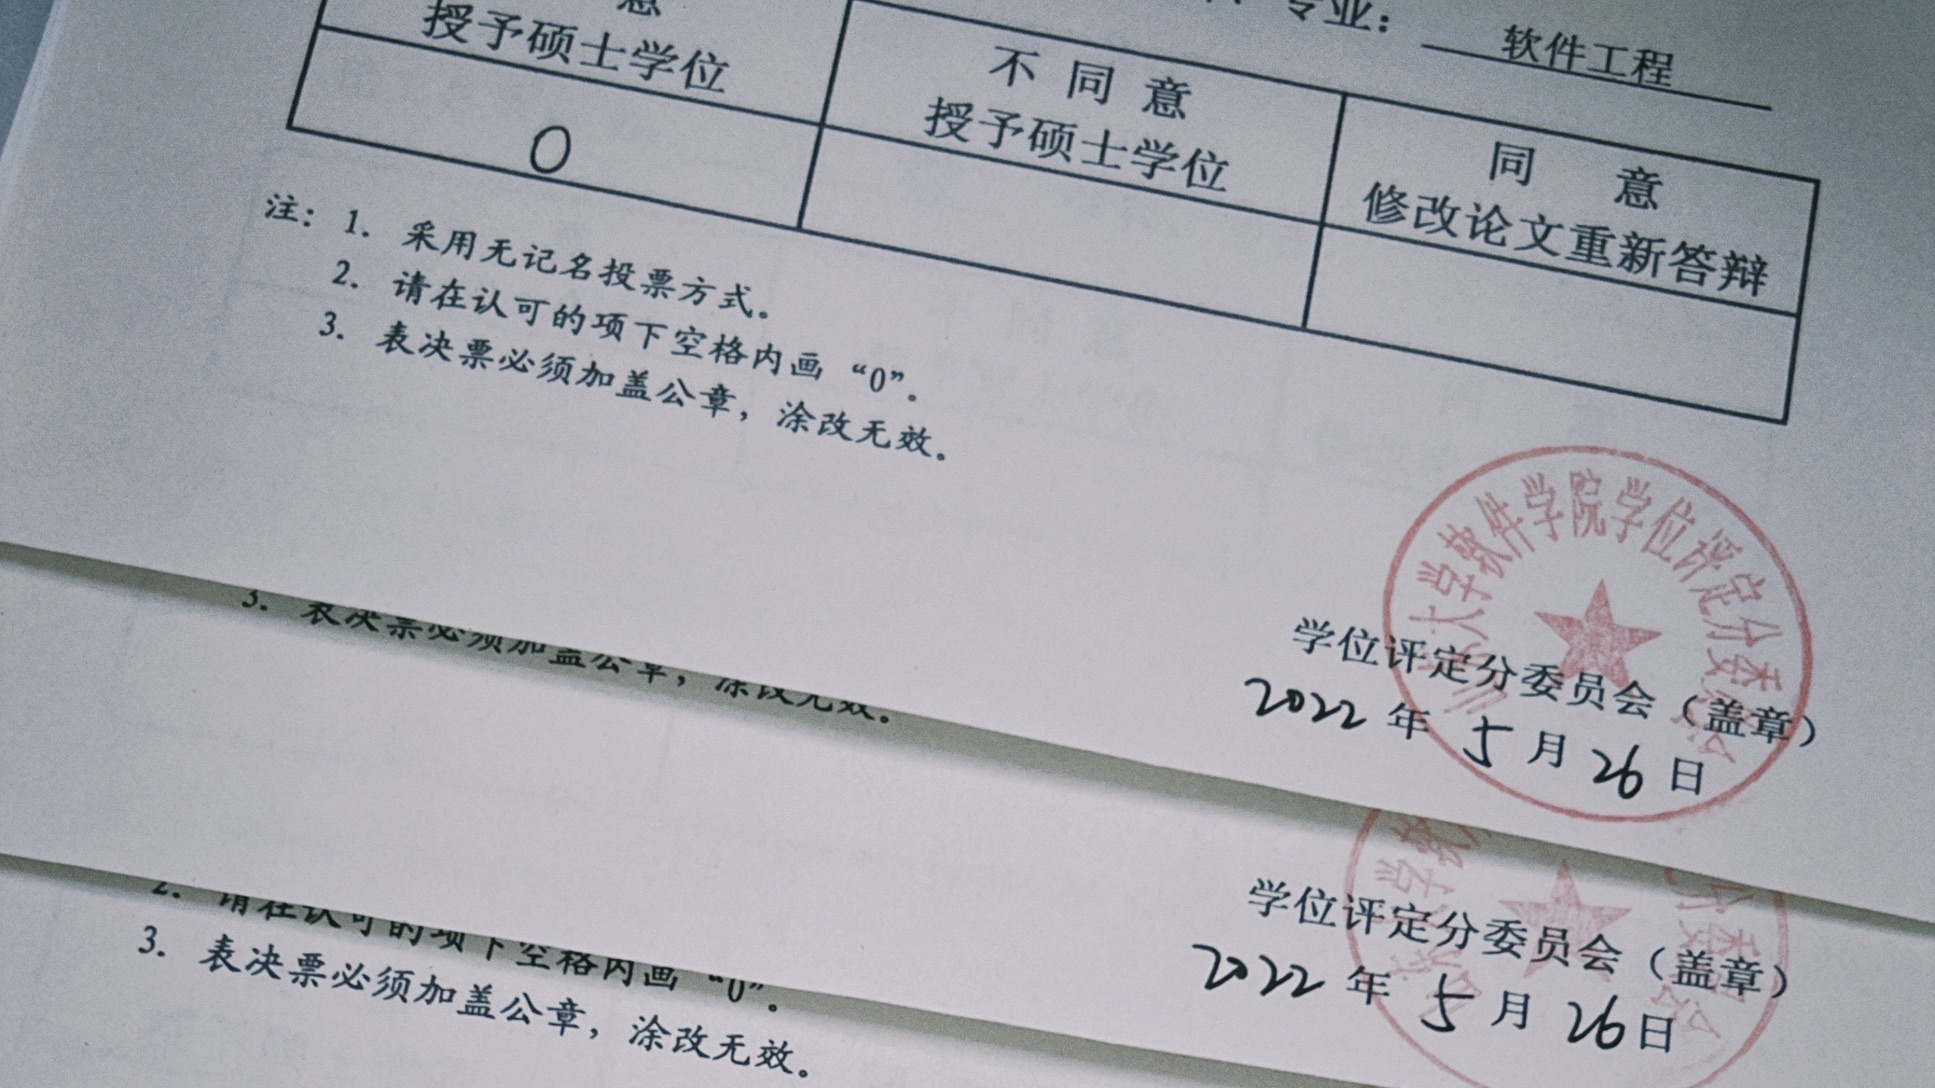 专业： 软件工程
意
授予硕士学位
不 同 意
授予硕士学位
同 意
修改论文重新答辩
0
注：1. 采用无记名投票方式。
2. 请在认可的项下空格内画 “0”。
3. 表决票必须加盖公章，涂改无效。
大学软件学院学位评定分委员会
学位评定分委员会（盖章）
2022 年 5 月 26 日
3. 表决票必须加盖公章，涂改无效。
学位评定分委员会（盖章）
2022 年 5 月 26 日
2. 请在认可的项下空格内画 “0”。
3. 表决票必须加盖公章，涂改无效。